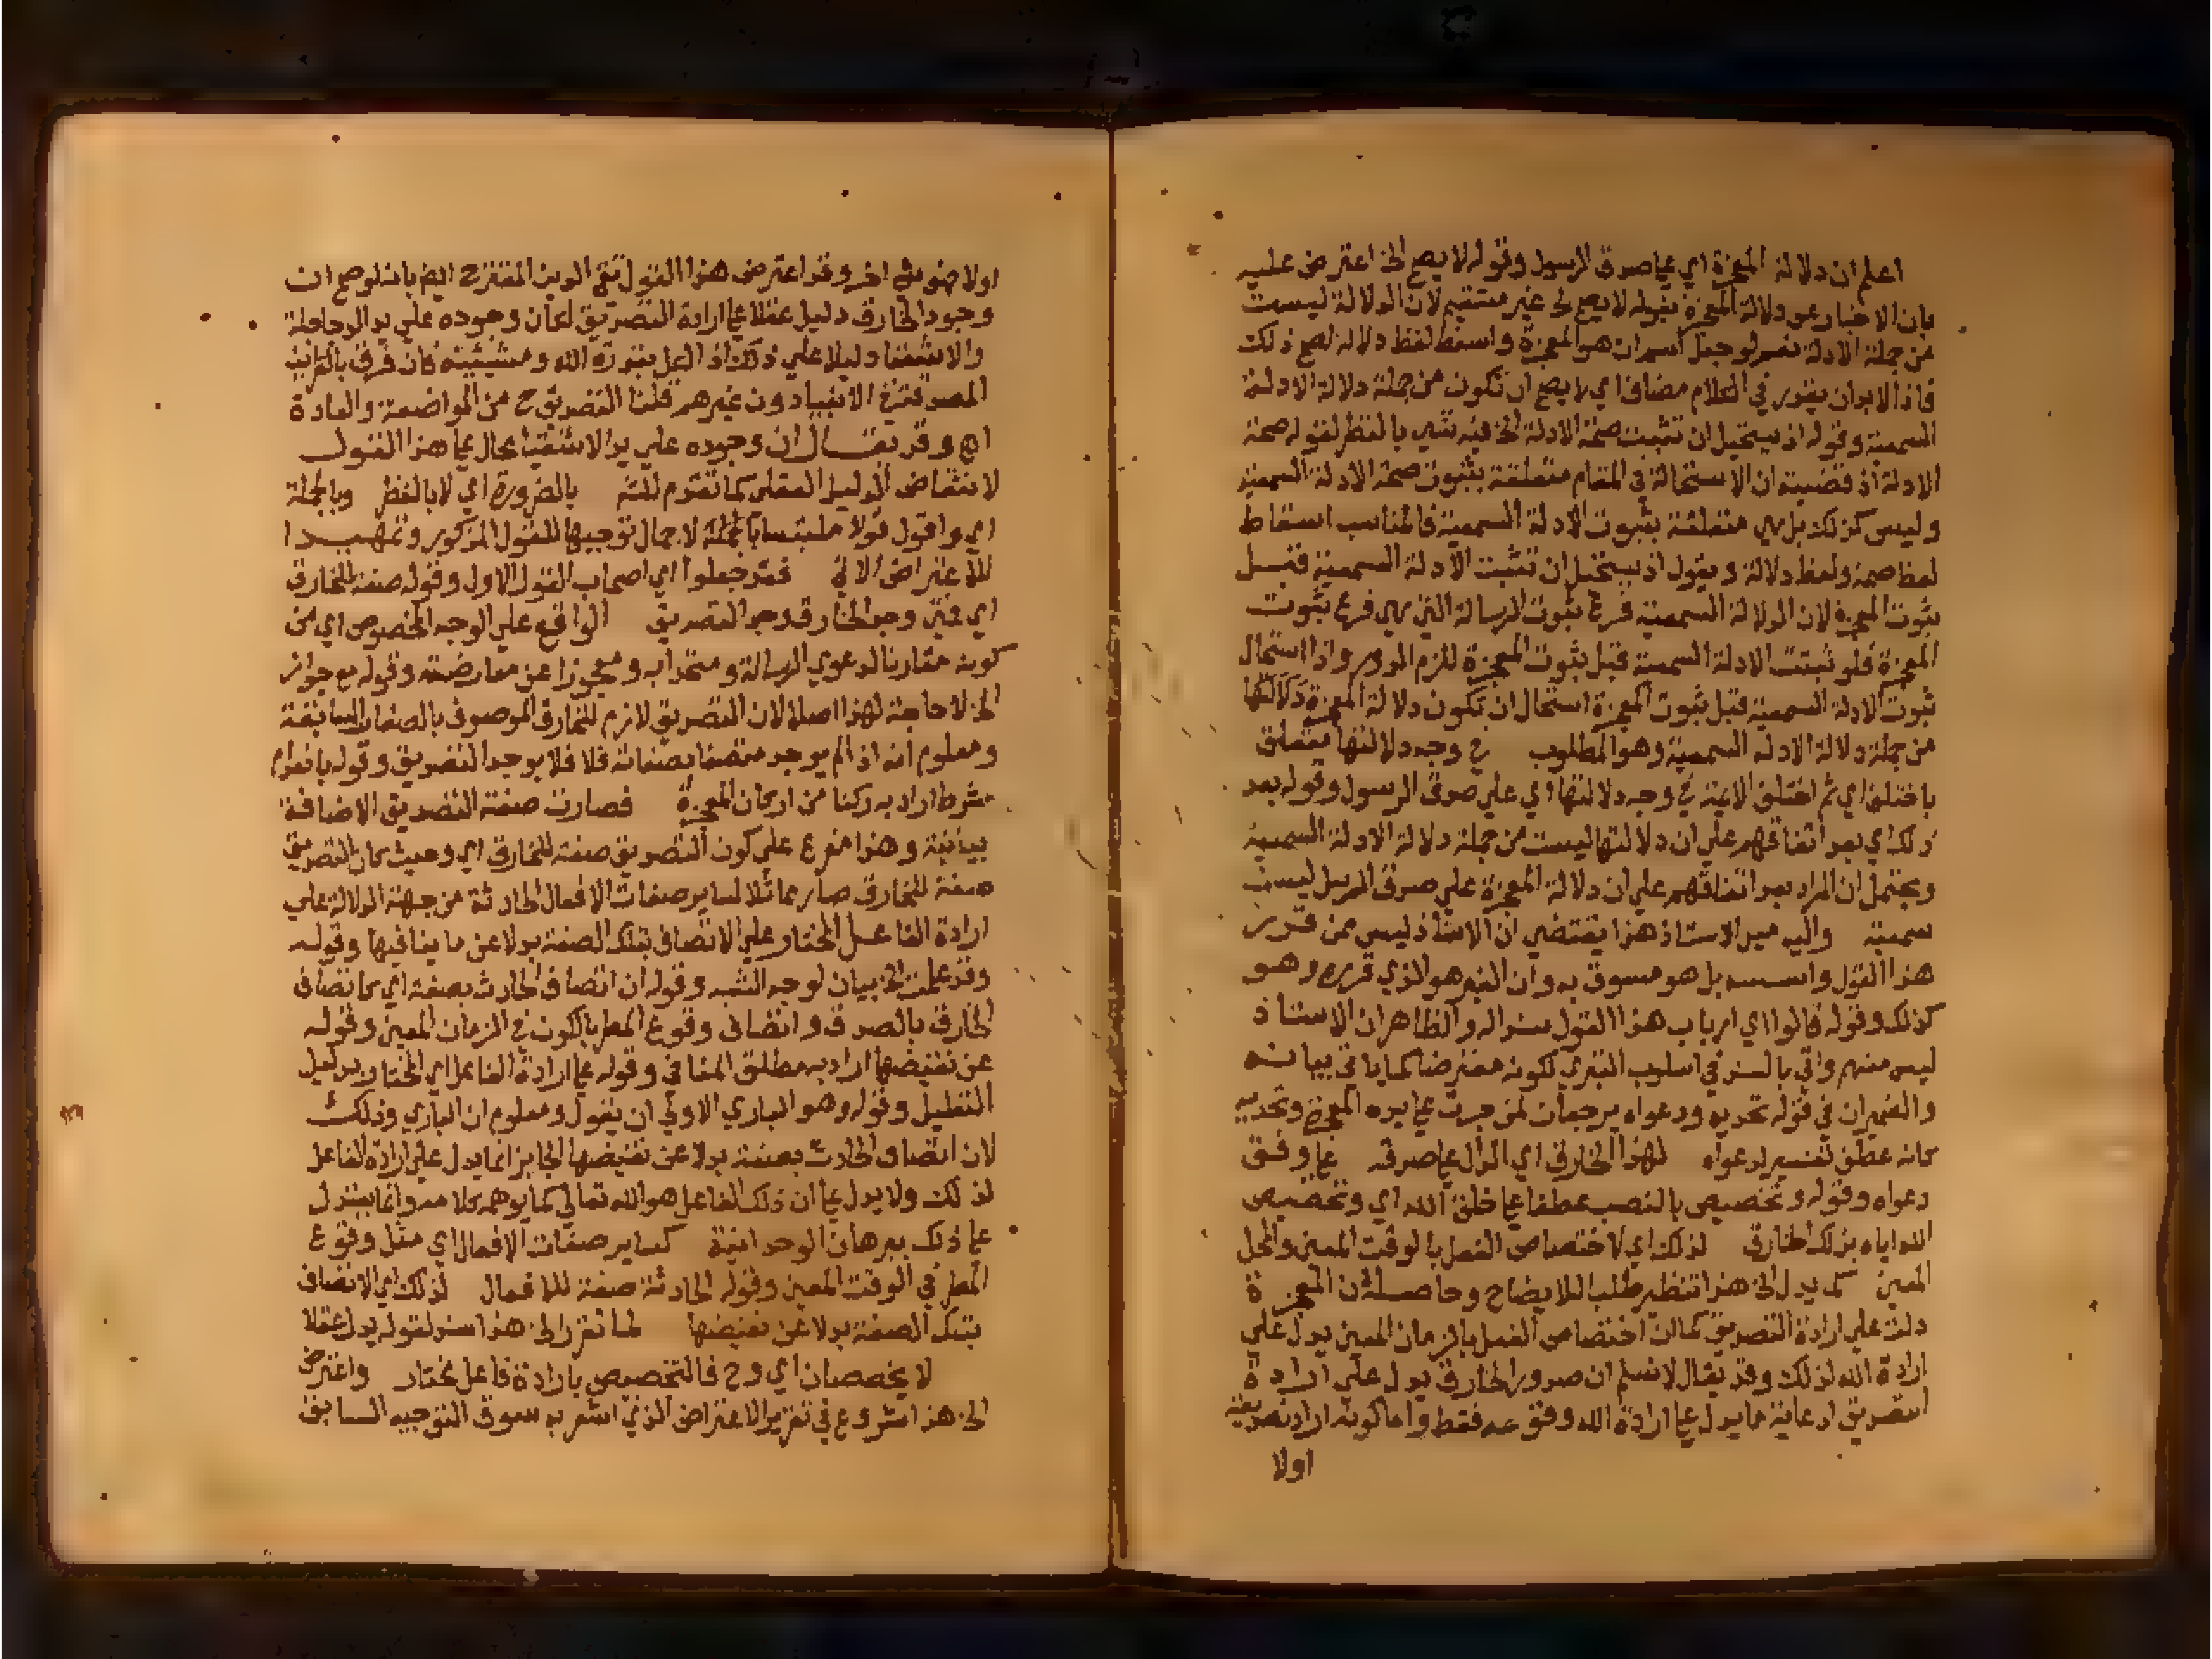 اعلم ان دلالة المعجزة اي على صدق الرسول وقوله لا يصح الخ اعترض عليه
بان الاخبار عن دلالة المعجزة بقوله لا يصح الخ غير مستقيم لان الدلالة ليست
من جملة الادلة نعم لو جعل اسم ان هو المعجزة واسقط لفظ دلالة لصح ذلك
فاذا لا بد ان يقدر في الكلام مضاف اي لا يصح ان تكون من جملة دلالة الادلة
السمعية وقوله اذ يستحيل ان تثبت صحة الادلة الخ فيه شي بالنظر لقوله صحة
الادلة اذ قضيته ان الاستحالة في المقام متعلقة بثبوت صحة الادلة السمعية
وليس كذلك بل هي متعلقة بثبوت الادلة السمعية فالمناسب اسقاط
لفظ صحة ولفظ دلالة ويقول اذ يستحيل ان تثبت الادلة السمعية قبل
ثبوت المعجزة لان الدلالة السمعية فرع ثبوت الرسالة التي هي فرع ثبوت
المعجزة فلو ثبتت الادلة السمعية قبل ثبوت المعجزة للزم الدور واذا استحال
ثبوت الادلة السمعية قبل ثبوت المعجزة استحال ان تكون دلالة المعجزة دلالتها
من جملة دلالة الادلة السمعية وهو المطلوب في وجه دلالتها متعلق
باختلف اي ثم اختلف الايمة في وجه دلالتها اي على صدق الرسول وقوله بعد
ذلك اي بعد اتفاقهم على ان دلالتها ليست من جملة دلالة الادلة السمعية
ويحتمل ان المراد بعد اتفاقهم على ان دلالة المعجزة على صدق المرسل ليست
سمعية واليه ميل الاستاذ هذا يقتضي ان الاستاذ ليس ممن قرر
هذا القول واسسه بل هو مسبوق به وان الغير هو الذي قرره وهو
كذلك وقوله قالوا اي ارباب هذا القول سنداله والظاهر ان الاستاذ
ليس منهم واتى بالسند في اسلوب التبري لكونه معترضا كما ياتي بيانه
والضميران في قوله تحديه ودعواه يرجعان لمن جرت على يده المعجزة وتحديه
كانه عطف تفسير لدعواه لهذا الخارق اي الدال على صدقه على وفق
دعواه وقوله وتخصيص بالنصب عطفا على خلق الله اي وتخصيص
الله اياه بذلك الخارق لذلك اي لاختصاص الفعل بالوقت المعين والمحل
المعين كما يدل الخ هذا تنظير طلبا للايضاح وحاصله ان المعجزة
دلت على ارادة التصديق كما ان اختصاص الفعل بالزمان المعين يدل على
ارادة الله لذلك وقد يقال لا نسلم ان صدور الخارق يدل على ارادة
التصديق اذ غاية ما يدل على ارادة الله وقوعه فقط واما كونه اراد تصديقه
اولا
اولا فهو شي اخر وقد اعترض هذا القول تقي الدين المقترح ايضا بانه لو صح ان
وجود الخارق دليل عقلا على ارادة التصديق لكان وجوده على يد الدجاجلة
والاشقيا دليلا على ذلك اذ الكل بقدرة الله ومشيئته فان فرق بالقرائن
المصدقة في الانبيا دون غيرهم قلنا التصديق ح من المواضعة والعادة
اه وقد يقال ان وجوده على يد الاشقيا محال على هذا القول
لانتقاض الدليل العقلي كما تقوم للثة بالضرورة اي لا بالنظر وبالجملة
اي واقول قولا ملتبسا بالجملة لاجمال توجيها للقول المذكور وتمهيدا
للاعتراض الاتي فقد جعلوا اي اصحاب القول الاول وقوله صفة للخارق
اي فمتى وجد الخارق وجد التصديق الواقع على الوجه المخصوص اي من
كونه مقارنا لدعوي الرسالة ومتحدا به ومعجوزا عن معارضته وقوله مع جواز
الخ لا حاجة لهذا اصلا لان التصديق لازم للخارق الموصوف بالصفات السابقة
ومعلوم انه اذا لم يوجد متصفا بصفاته فلا يوجد التصديق وقوله بانعدام
شرط اراد به ركنا من اركان المعجزة فصارت صفة التصديق الاضافة
بيانية وهذا مفرع على كون التصديق صفة للخارق اي وحيث كان التصديق
صفة للخارق صار مماثلا لساير صفات الافعال الحادثة من جهة الدلالة على
ارادة الفاعل المختار على الاتصاف بتلك الصفة بدلا عن ما ينافيها وقوله
وقد علمت الخ بيان لوجه الشبه وقوله ان اتصاف الحادث بصفة اي كاتصاف
الخارق بالصدق واتصاف وقوع المطر بالكون في الزمان المعين وقوله
عن نقيضها اراد به مطلق المنافي وقوله على ارادة الفاعل اي المختار بدليل
التعليل وقوله وهو الباري الاولى ان يقول ومعلوم ان الباري وذلك
لان اتصاف الحادث بصفة بدلا عن نقيضها الجايز انما يدل على ارادة الفاعل
لذلك ولا يدل على ان ذلك الفاعل هو الله تعالى كما يوهمه كلامه وانما يستدل
على ذلك ببرهان الوحدانية كساير صفات الافعال اي مثل وقوع
المطر في الوقت المعين وقوله الحادثة صفة للافعال لذلك اي الاتصاف
بتلك الصفة بدلا عن نقيضها لما تقرر الخ هذا سند لقوله يدل عقلا
لا يخصصان اي وح فالتخصيص بارادة فاعل مختار واعترض
الخ هذا شروع في تقرير الاعتراض الذي اشعر به سوق التوجيه السابق